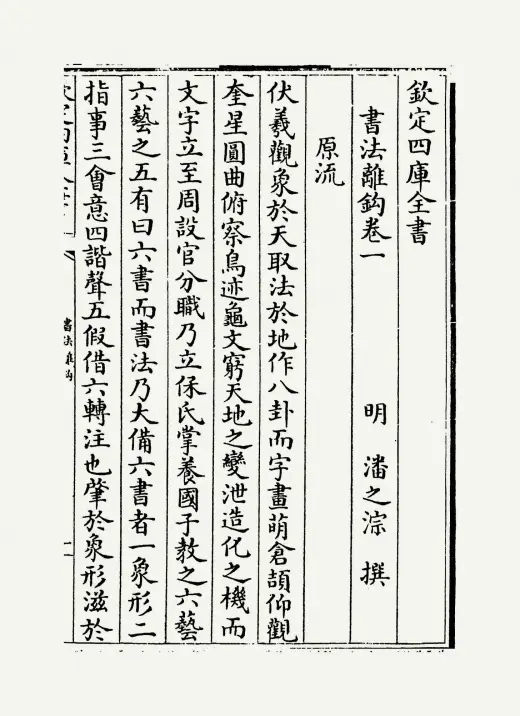 欽定四庫全書
書法離鈎卷一　明　潘之淙　撰
原流
伏羲觀象於天取法於地作八卦而字畫萌倉頡仰觀
奎星圓曲俯察鳥迹龜文窮天地之變泄造化之機而
文字立至周設官分職乃立保氏掌養國子教之六藝
六藝之五有曰六書而書法乃大備六書者一象形二
指事三會意四諧聲五假借六轉注也肇於象形滋於
書法離鈎